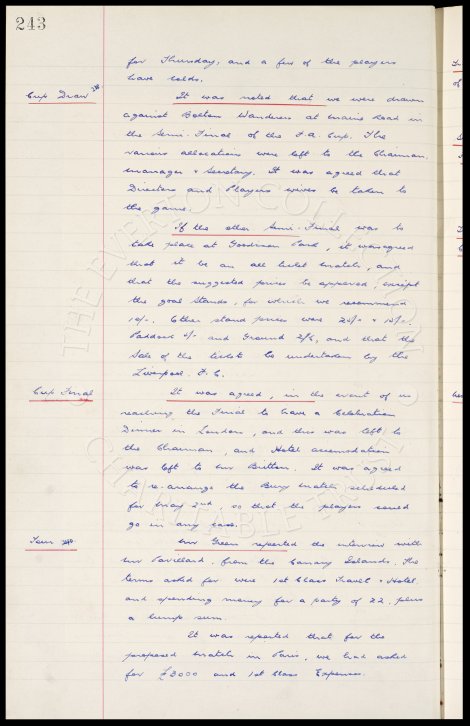 243
for Thursday, and a few of the players
have colds.
Cup Draw
It was noted that we were drawn
against Bolton Wanderers at Maine Road in
the Semi-Final of the F.A. Cup. The
various allocations were left to the Chairman,
Manager & Secretary. It was agreed that
Directors and Players wives be taken to
the game.
If the other Semi-Final was to
take place at Goodison Park, it was agreed
that it be an all ticket match, and
that the suggested prices be approved, except
the Goal Stands, for which we recommend
10/-. Other stand prices were
Paddock and Ground 2/6, and that the
Sale of the tickets be undertaken by the
Liverpool F.C.
Cup Final
It was agreed, in the event of us
reaching the Final to have a Celebration
Dinner in London, and this was left to
the Chairman, and Hotel accomodation
was left to Mr Britton. It was agreed
to re-arrange the Bury match scheduled
for May 2nd, so that the players could
go in any case.
Tour
Mr Green reported the interview with
Mr from the Canary Islands. The
terms asked for were 1st Class Travel & Hotel
and spending money for a party of 22, plus
a lump sum.
It was reported that for the
proposed match in Paris, we had asked
for £3000 and 1st Class Expenses.
THE EVERTON COLLECTION
CHARITABLE TRUST